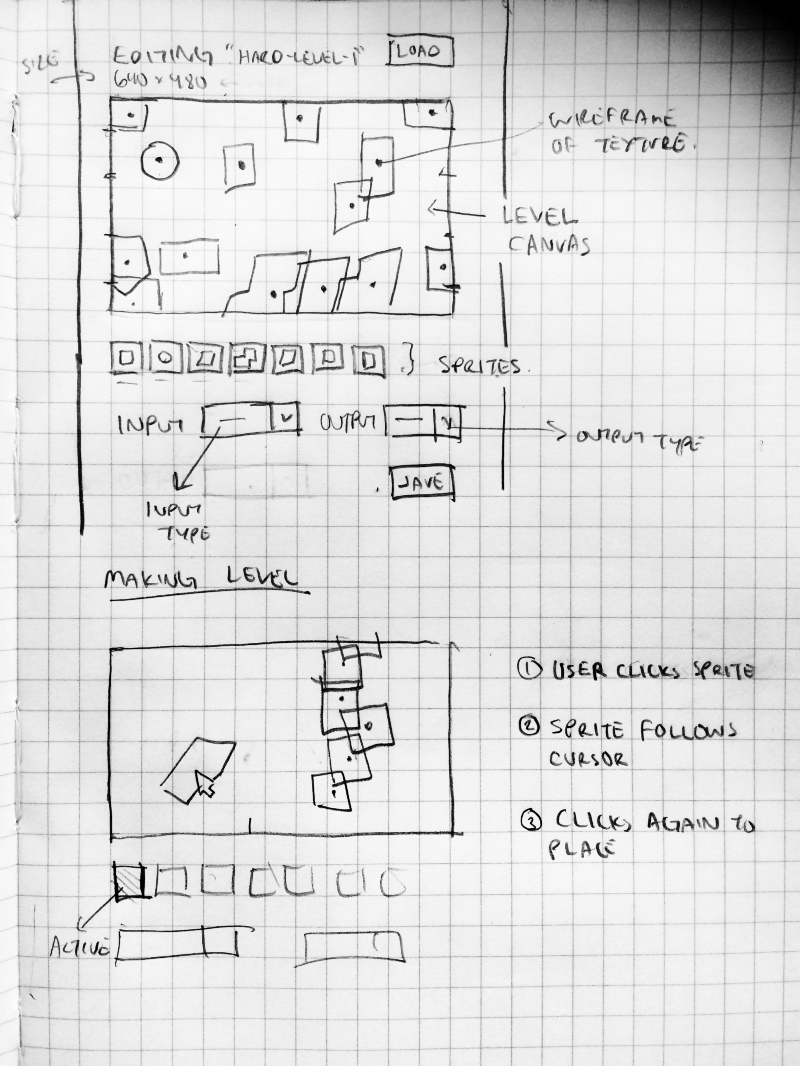 SIZE
EDITING "HARD-LEVEL-1" LOAD
640 × 480
WIREFRAME
OF TEXTURE.
LEVEL
CANVAS
} SPRITES.
INPUT OUTPUT
OUTPUT TYPE
SAVE
INPUT
TYPE
MAKING LEVEL
① USER CLICKS SPRITE
② SPRITE FOLLOWS
CURSOR
③ CLICKS AGAIN TO
PLACE
ACTIVE